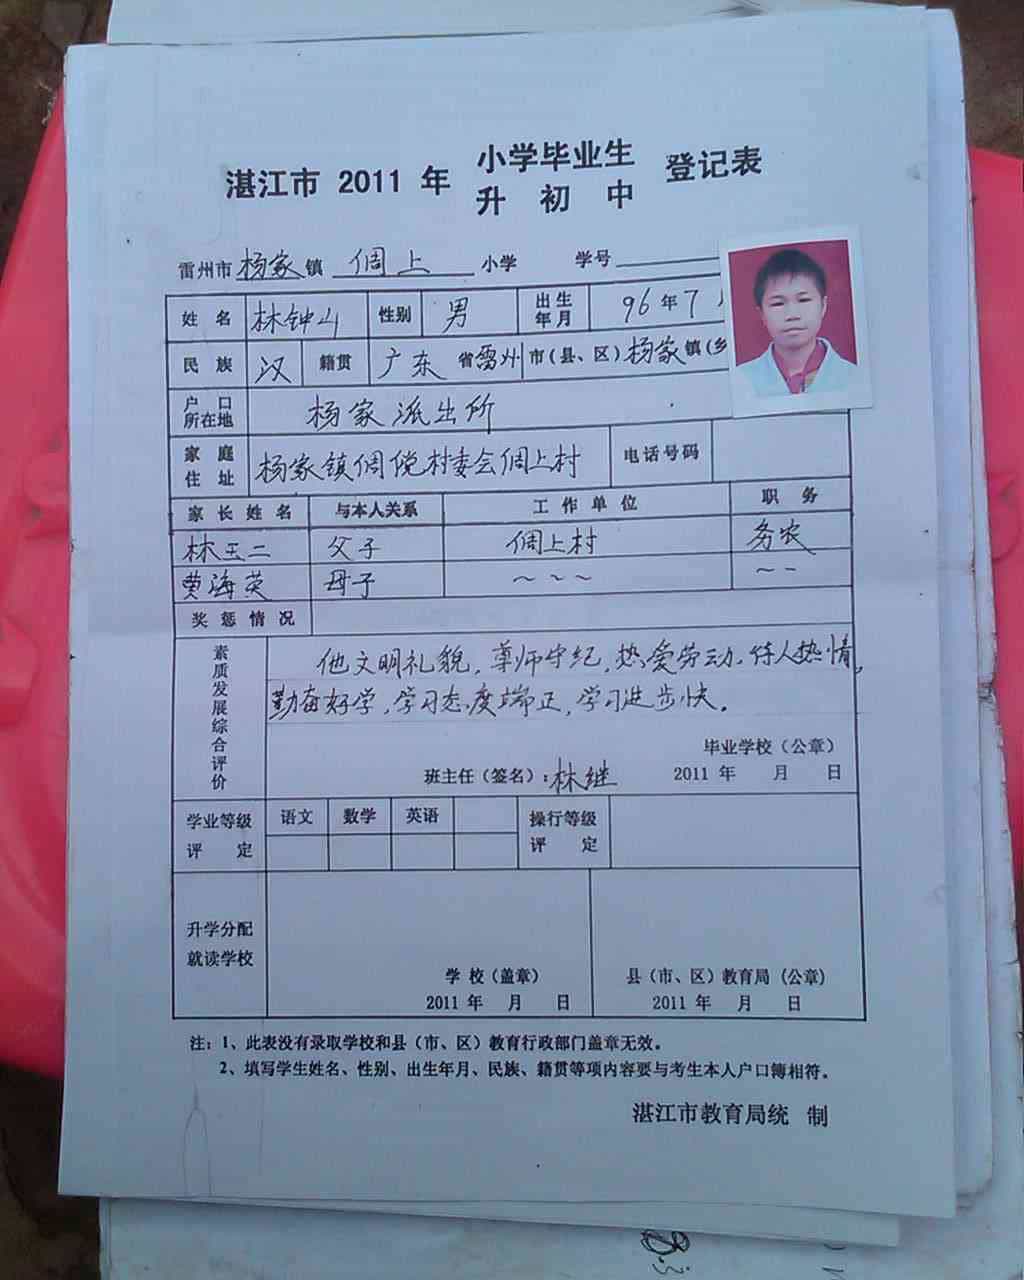 湛江市 2011 年 小学毕业生 登记表
升 初 中
雷州市 杨家 镇 倜上 小学 学号
姓 名 林钟山 性别 男 出生年月 96 年 7
民 族 汉 籍贯 广东 省 雷州 市(县、区) 杨家 镇(乡
户 口 所在地 杨家派出所
家 庭 住 址 杨家镇倜傥村委会倜上村 电话号码
家 长 姓 名 与本人关系 工 作 单 位 职 务
林玉二 父子 倜上村 务农
曹海英 母子 ~ ~ ~ ~ ~
奖 惩 情 况
素质发展综合评价
他文明礼貌,尊师守纪,热爱劳动,待人热情,
勤奋好学,学习态度端正,学习进步快。
毕业学校(公章)
班主任(签名):林继 2011 年 月 日
学业等级 评 定 语文 数学 英语 操行等级 评 定
升学分配 就读学校
学 校(盖章) 县(市、区)教育局 (公章)
2011 年 月 日 2011 年 月 日
注:1、此表没有录取学校和县(市、区)教育行政部门盖章无效。
2、填写学生姓名、性别、出生年月、民族、籍贯等项内容要与考生本人户口簿相符。
湛江市教育局统 制